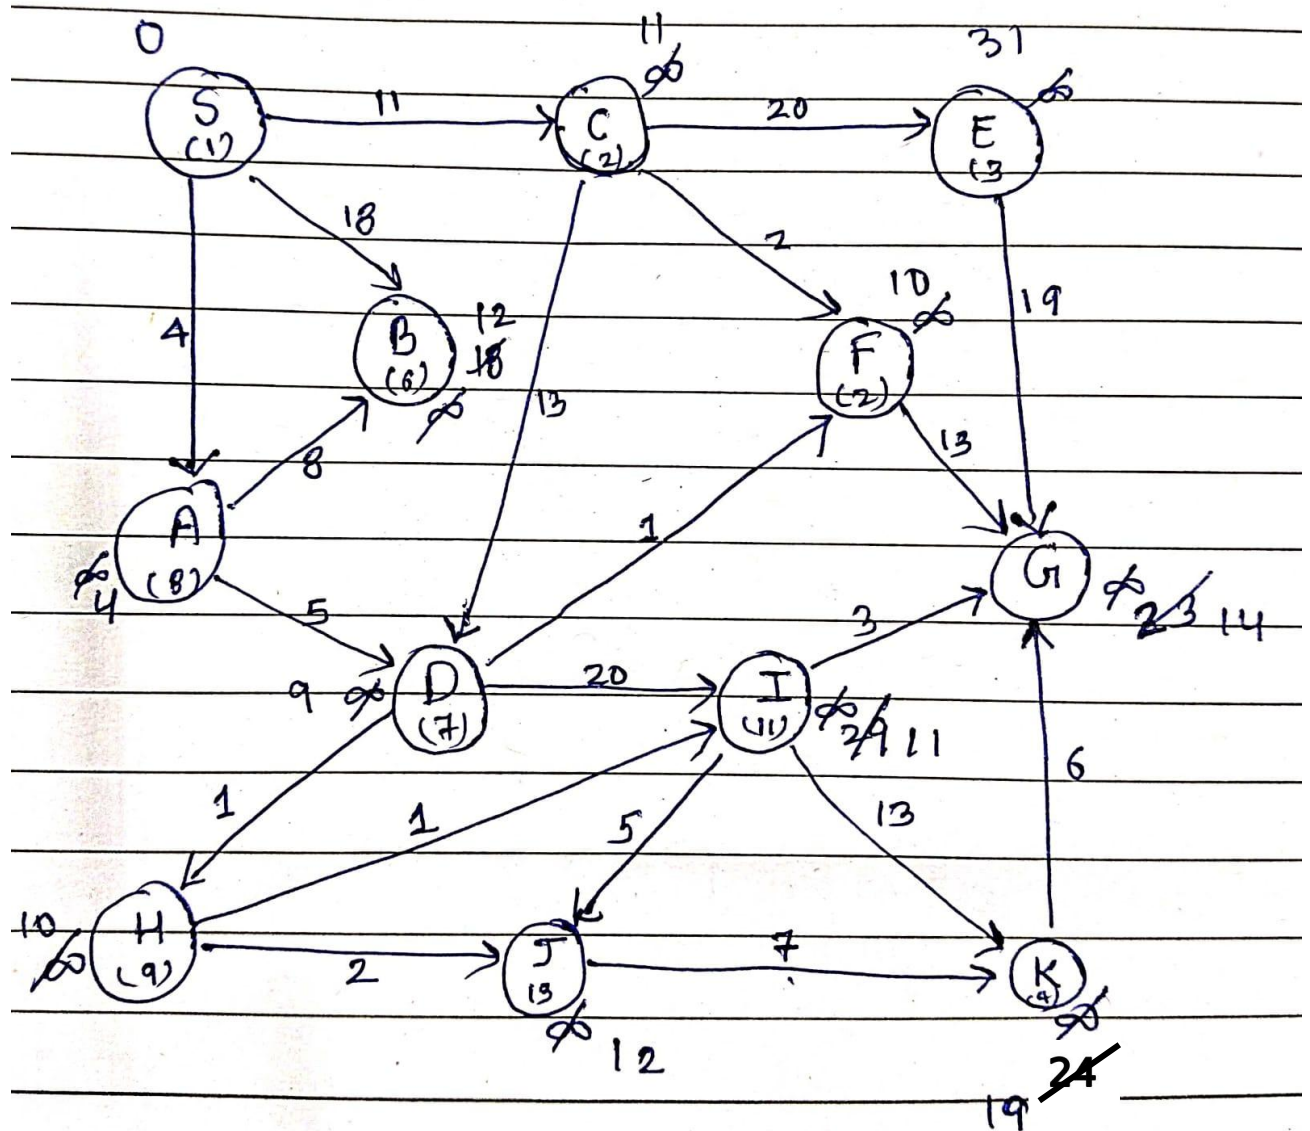 0
11
31
∞
∞
S
(1)
11
C
(2)
20
E
(3
18
2
10
∞
19
4
B
(6)
12
18
∞
13
F
(2)
13
8
1
A
(8)
∞
4
5
G
∞
23
14
3
9
∞
D
(7)
20
I
(11)
∞
29
11
1
1
5
13
6
10
∞
H
(9)
2
J
13
∞
12
7
K
(4)
∞
24
19